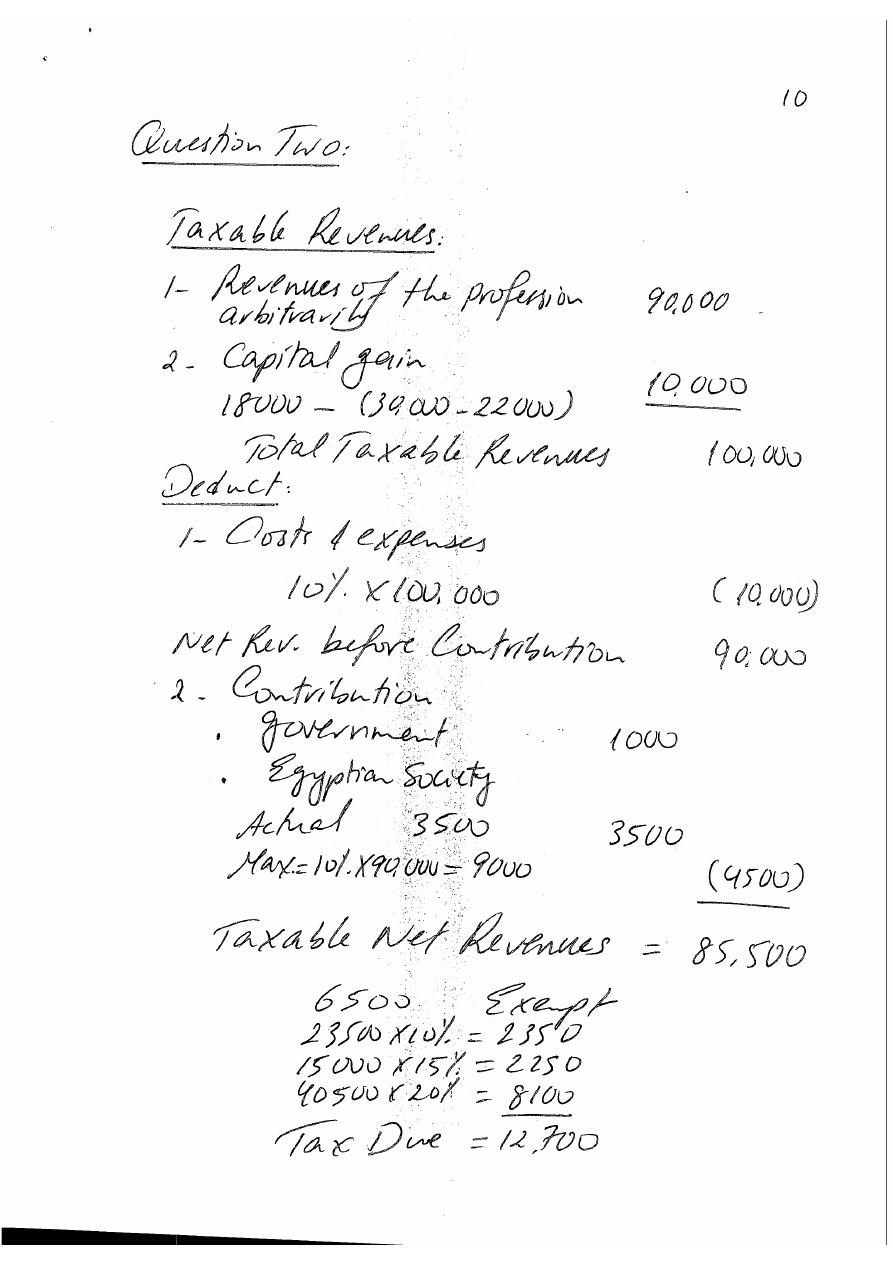 10
Question Two:
Taxable Revenues:
1- Revenues of the profession 90,000
arbitrarily
2- Capital gain 10,000
18000 - (30,000-22000)
Total Taxable Revenues 100,000
Deduct:
1- Costs & expenses
10% X 100,000 (10,000)
Net Rev. before Contribution 90,000
2- Contribution
. government 1000
. Egyptian Society
Actual 3500 3500
Max.= 10% X 90,000 = 9000 (4500)
Taxable Net Revenues = 85,500
6500 Exempt
23500 X 10% = 2350
15000 X 15% = 2250
40500 X 20% = 8100
Tax Due = 12,700